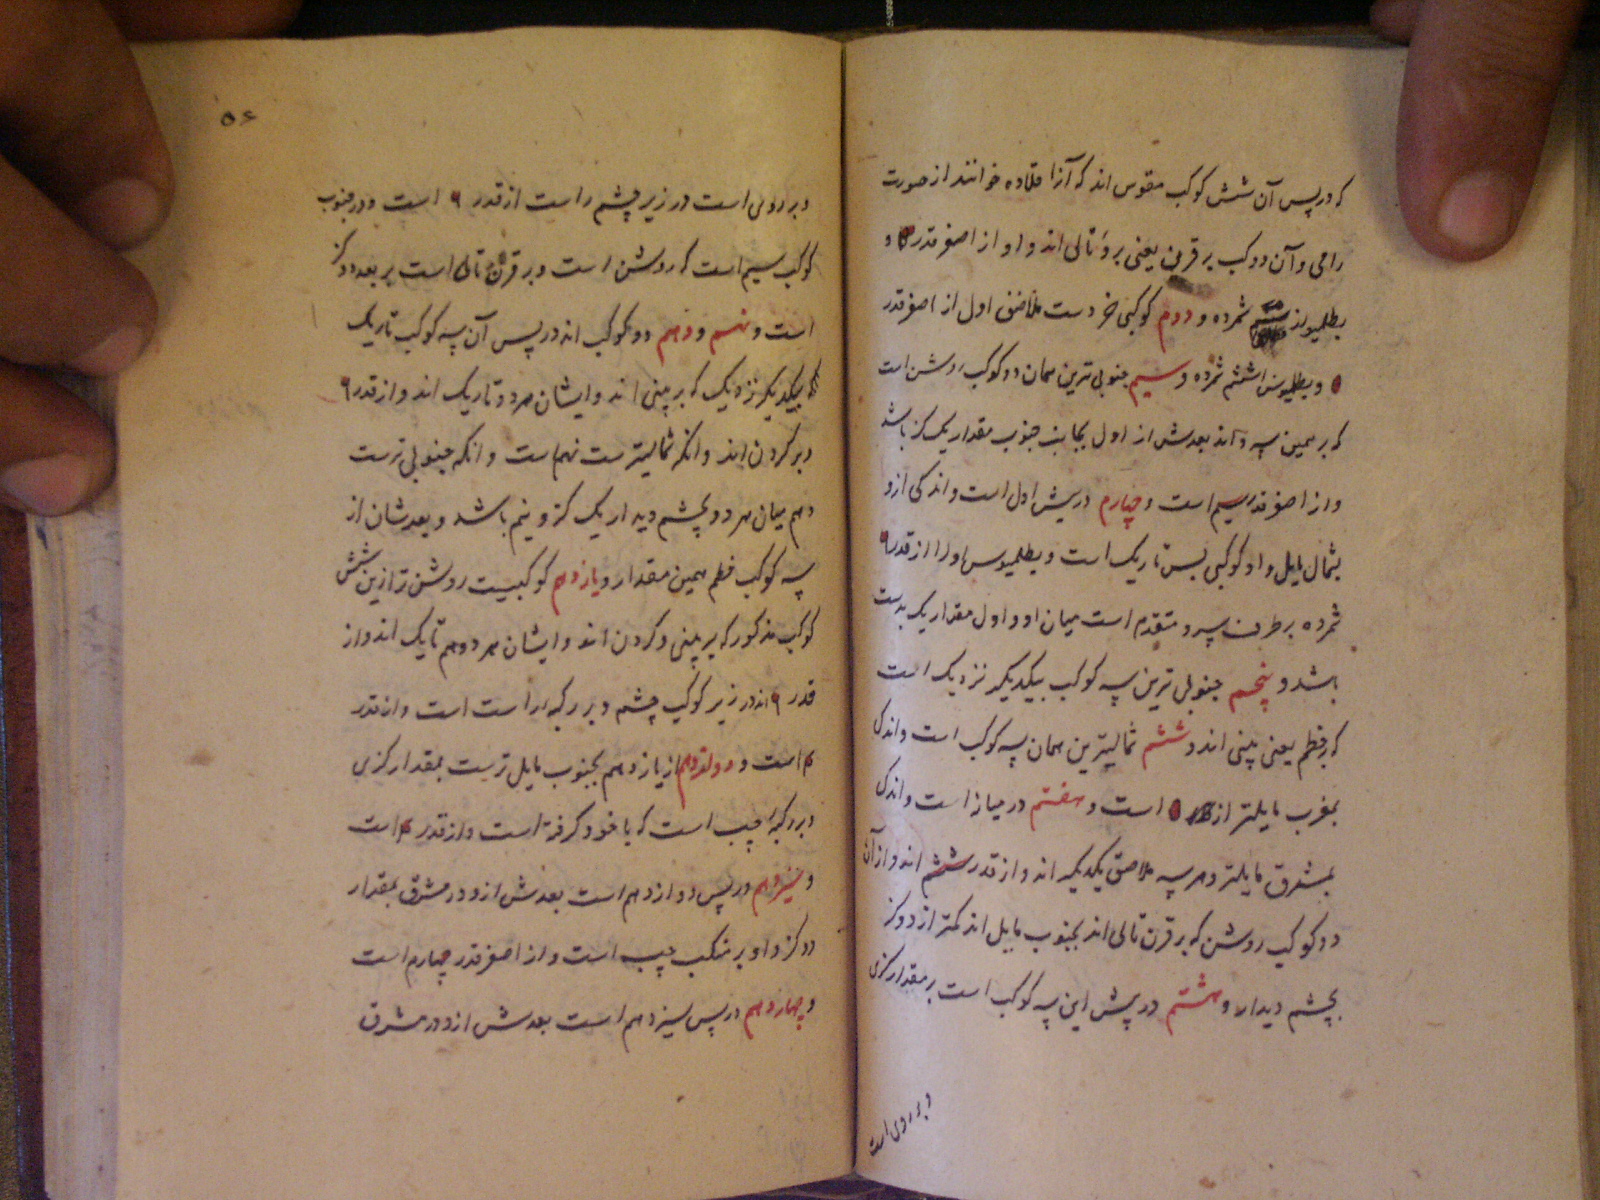 که در پس آن شش کوکب مقوس اند که آنرا قلاده خوانند از صورت
رامی و آن دو کوکب بر قرن یعنی برو تالی اند و او از اصغر قدر و
بطلمیوس شمرده و دوم کوکبی خردست ملاصق اول از اصغر قدر
۵ و بطلیموس ششم شمرده و سیم جنوبی ترین همان دو کوکب روشن است
که بر همین سه و اند بعدش از اول بجانب جنوب مقدار یک کز باشد
و از اصغر قدر سیم است و چهارم در پیش اول است و اندکی ازو
بشمال مایل و او کوکبی بس تاریک است و بطلمیوس او را از قدر ۶
شمرده بر طرف سرو متقدم است میان او و اول مقدار یک بدست
باشد و پنجم جنوبی ترین سه کوکب بیکدیگر نزدیک است
که بر فطم یعنی بینی اند و ششم شمالیترین همان سه کوکب است و اندکی
بمغرب مایلتر از ۵ است و هفتم در میانه است و اندکی
بمشرق مایلتر و هر سه ملاصق یکدیگر اند و از قدر ششم اند و از آن
دو کوکب روشن که بر قرن تالی اند بجنوب مایل اند کمتر از دو کز
بچشم دیدار و هشتم در پیش این سه کوکب است بر مقدار کزی
و بر روی است
۵۶
و بر روی است در زیر چشم راست از قدر ۶ است و در جنوب
کوکب سیم است که روشن است و بر قرن تالی است بر بعد دو کز
است و نهم و دهم دو کوکب اند در پس آن سه کوکب تاریک
بیکدیگر نزدیک که بر بینی اند و ایشان هر دو تاریک اند و از قدر ۶
و بر کردن اند و آنکه شمالیترست نهم است و آنکه جنوبی ترست
دهم میان هر دو بچشم دیدار یک کز و نیم باشد و بعدشان از
سه کوکب فطم همین مقدار و یازدهم کوکبیست روشن تر ازین شش
کوکب مذکور که بر بینی و کردن اند و ایشان هر دو هم تاریک اند و از
قدر ۶ اند در زیر کوکب چشم و بر رکبه راست است و از قدر
۴ است و دوازدهم از یازدهم بجنوب مایل ترست بمقدار کزی
و بر رکبه چپ است که با خود کرفته است و از قدر ۴ است
و سیزدهم در پس دوازدهم است بعدش ازو در مشرق بمقدار
دو کز و او بر منکب چپ است و از اصغر قدر چهارم است
و چهاردهم در پس سیزدهم است بعدش ازو در مشرق